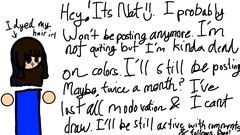 I dyed my
hair!!
Hey! Its Not!!. I probably
Won't be posting anymore. I'm
not quting but I'm kinda dead
on colors. I'll still be posting
Maybe twice a month? I've
lost all modovation & I cant
draw. I'll be still active with comments
& follows